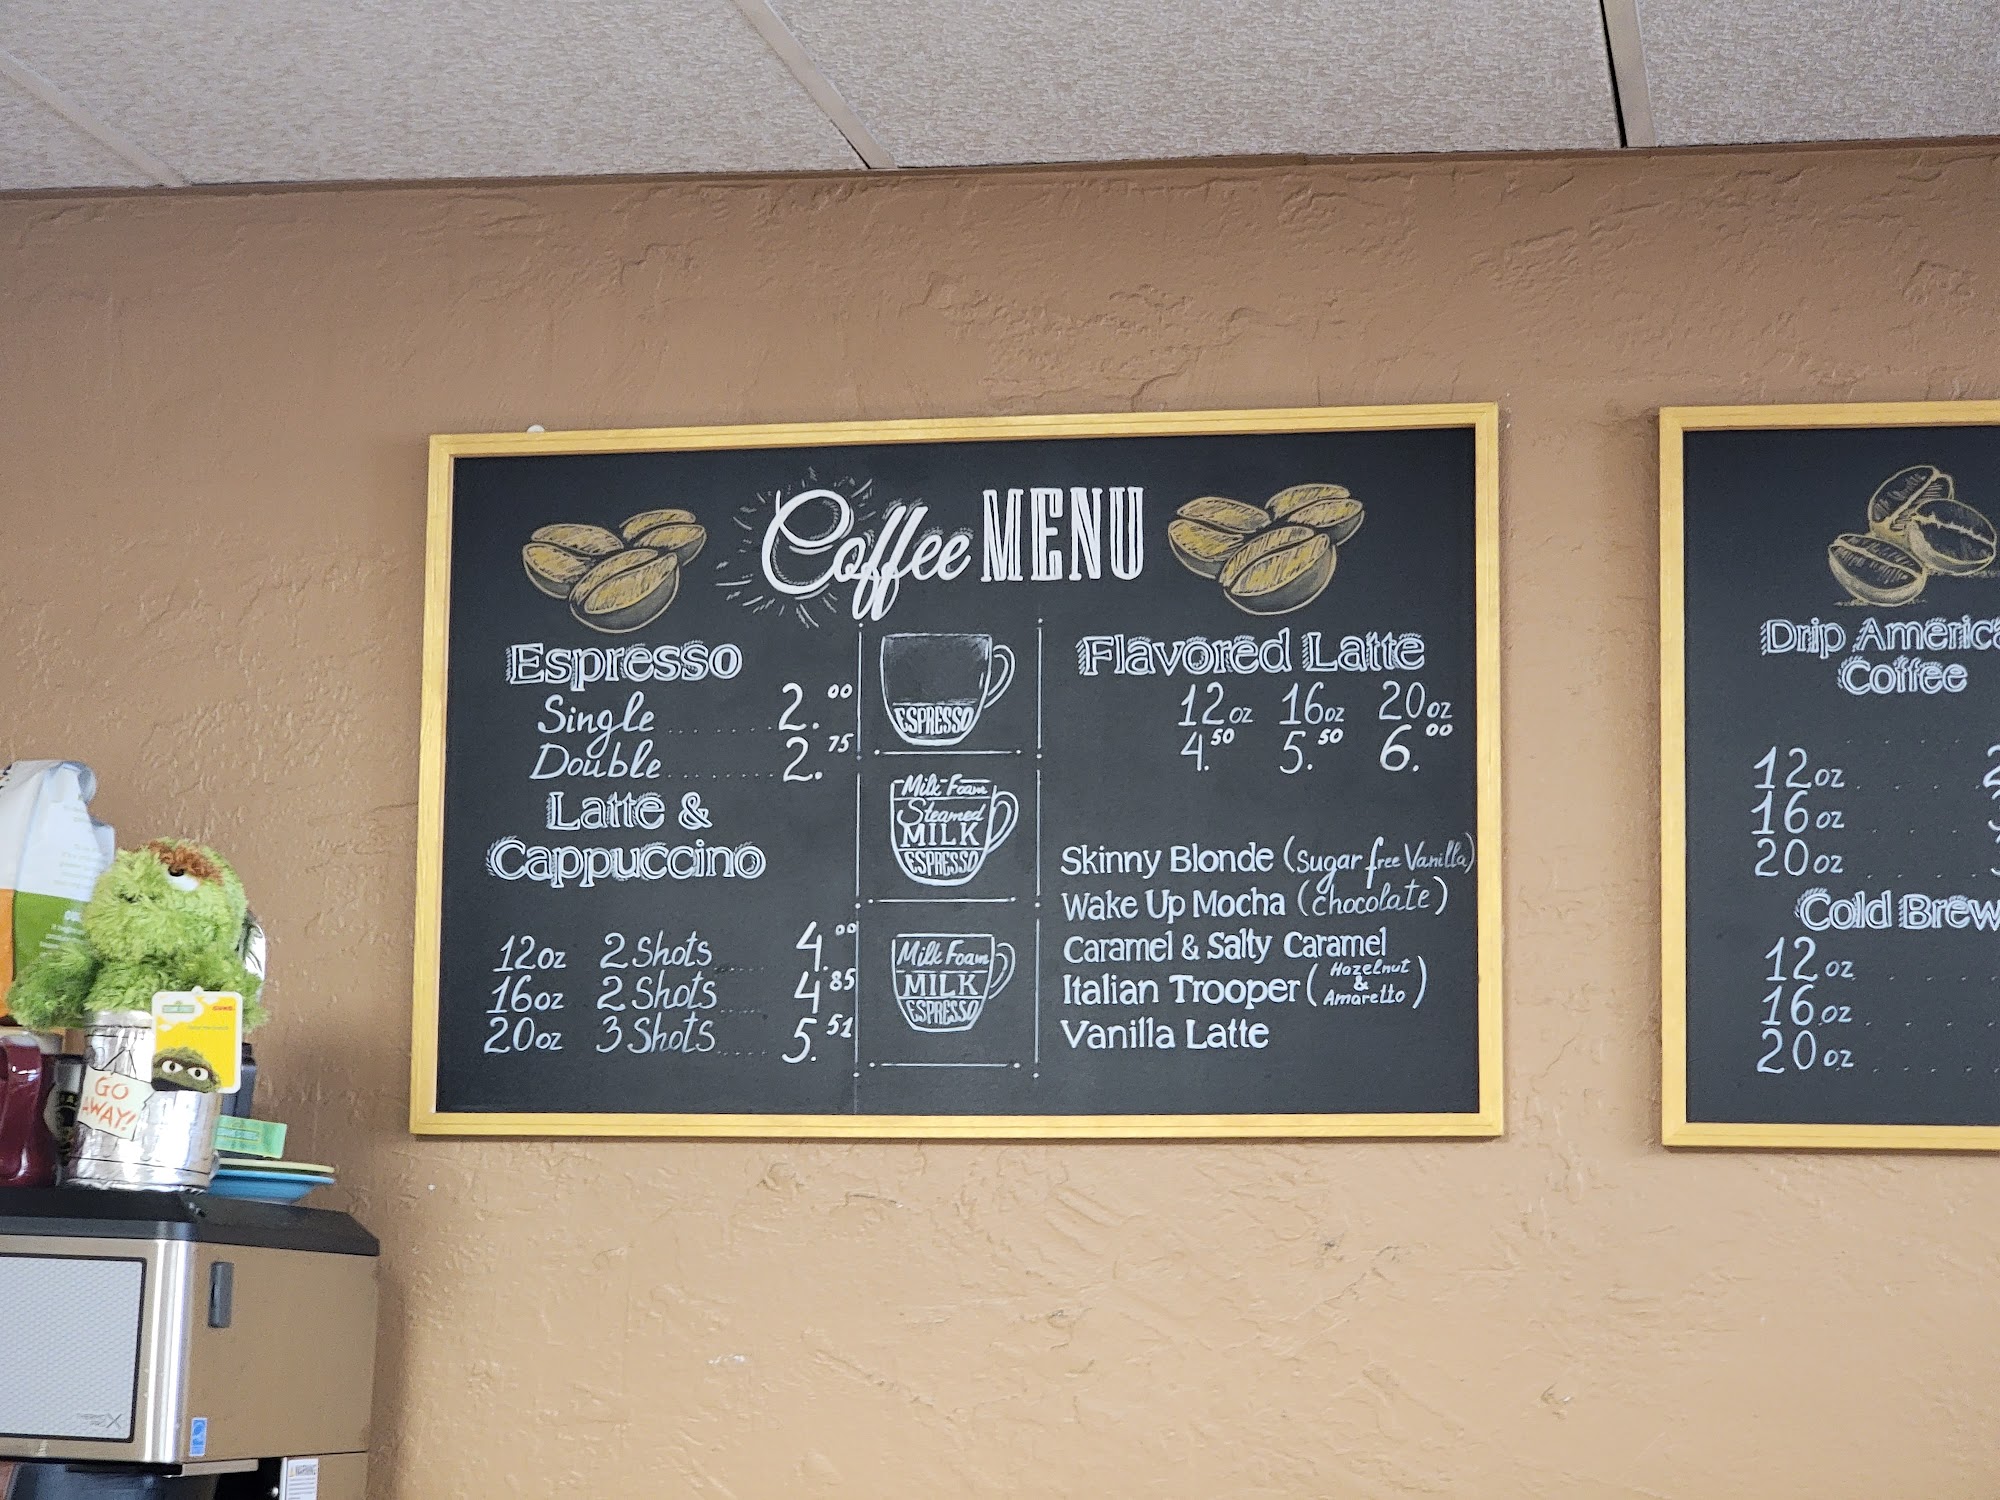 Coffee MENU
Espresso
Single ..... 2.00
Double ..... 2.75
Latte &
Cappuccino
12oz 2 Shots .... 4.00
16oz 2 Shots .... 4.85
20oz 3 Shots .... 5.51
ESPRESSO
Milk Foam
Steamed
MILK
ESPRESSO
Milk Foam
MILK
ESPRESSO
Flavored Latte
12oz 16oz 20oz
4.50 5.50 6.00
Skinny Blonde (Sugar free Vanilla)
Wake Up Mocha (chocolate)
Caramel & Salty Caramel
Italian Trooper (Hazelnut & Amaretto)
Vanilla Latte
Drip
Coffee
12oz
16oz
20oz
Cold Brew
12oz
16oz
20oz
GO
AWAY!
WARNING